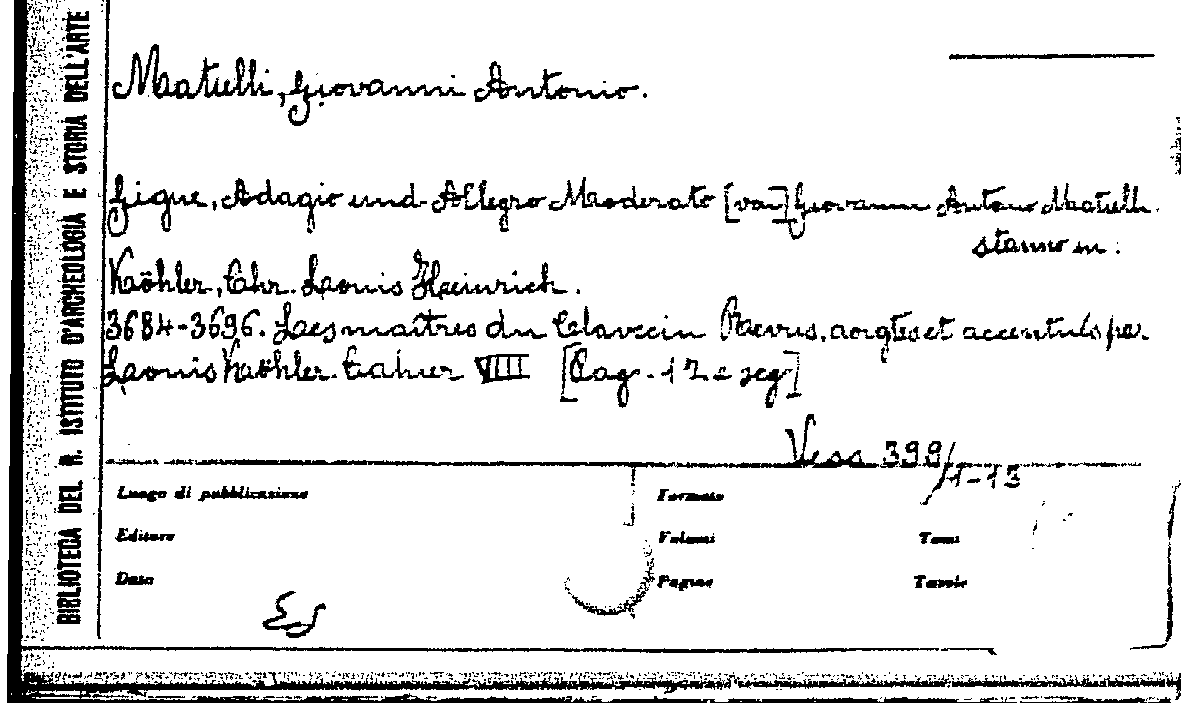 BIBLIOTECA DEL R. ISTITUTO D'ARCHEOLOGIA E STORIA DELL'ARTE
Matielli, Giovanni Antonio.
Gigue, Adagio und Allegro Moderato [von] Giovanni Antonio Matielli.
stanno in:
Köhler, Chr. Louis Heinrich.
3684-3696. Les maîtres du Clavecin Revus, et accentués par
Louis Köhler. Cahier VIIII [Pag. 12 e seg]
Vess 399/1-13
Luogo di pubblicazione
Formato
Editore
Volumi
Tomi
Data
Pagine
Tavole